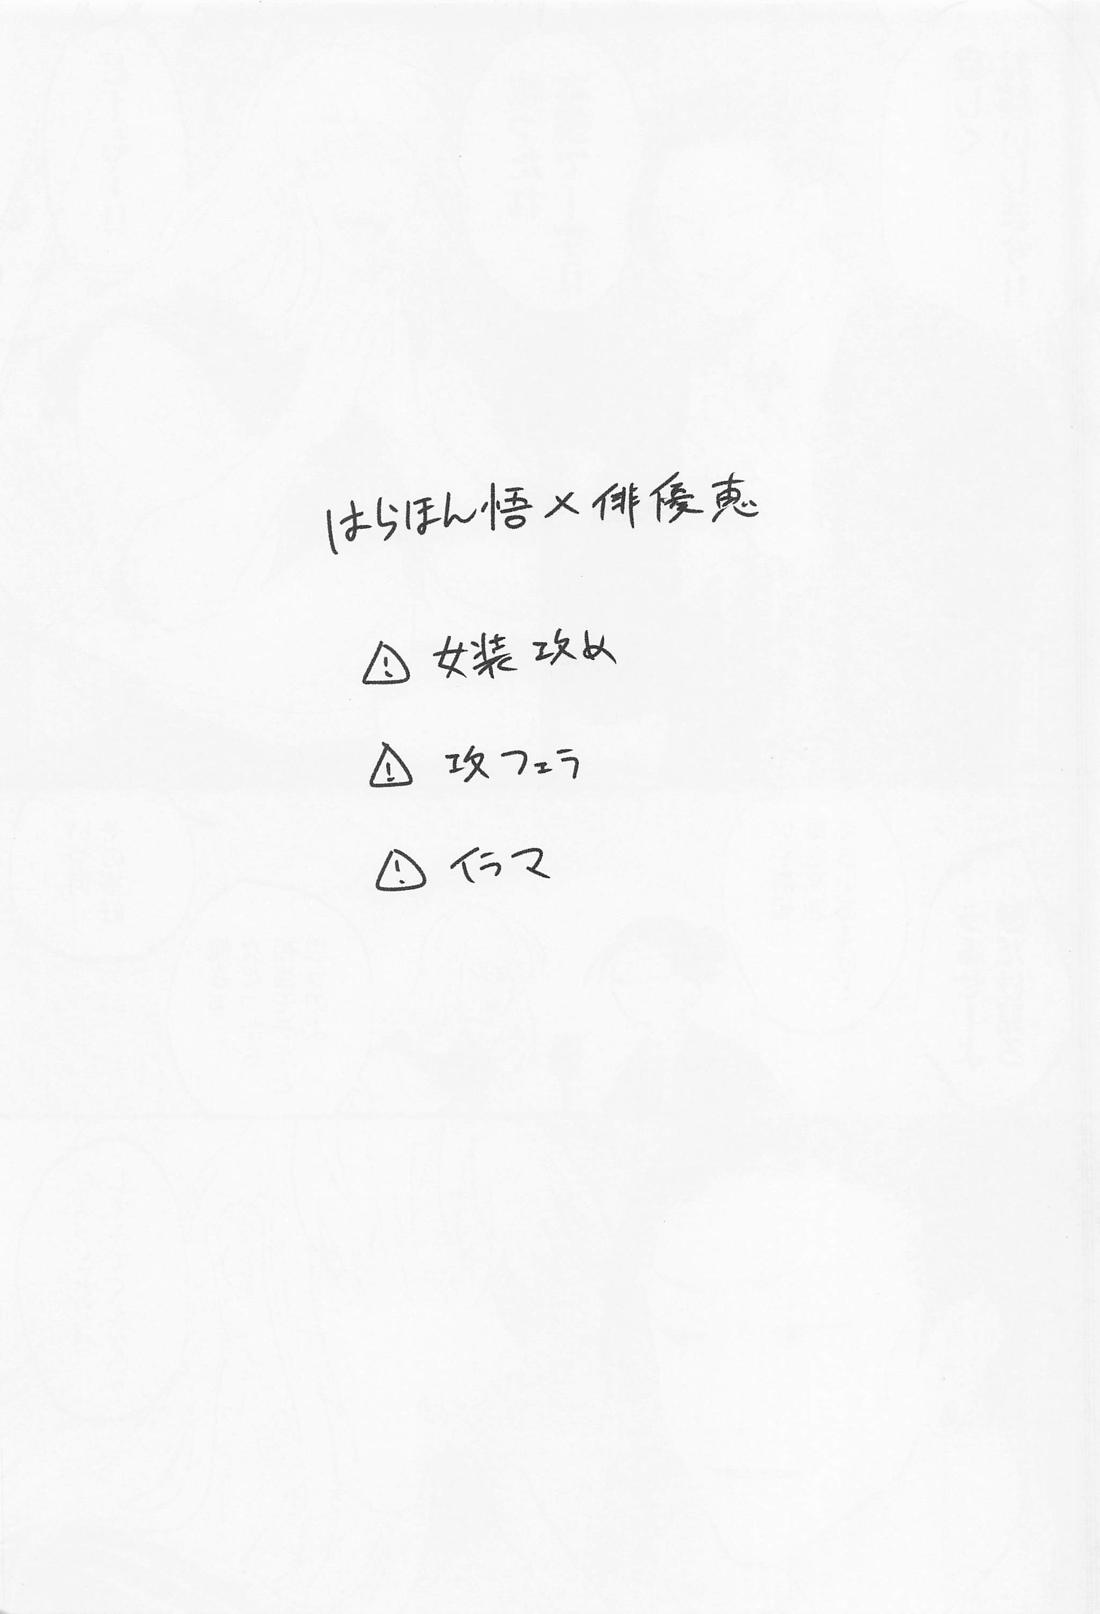 はらほん悟×俳優恵
⚠女装攻め
⚠攻フェラ
⚠イラマ